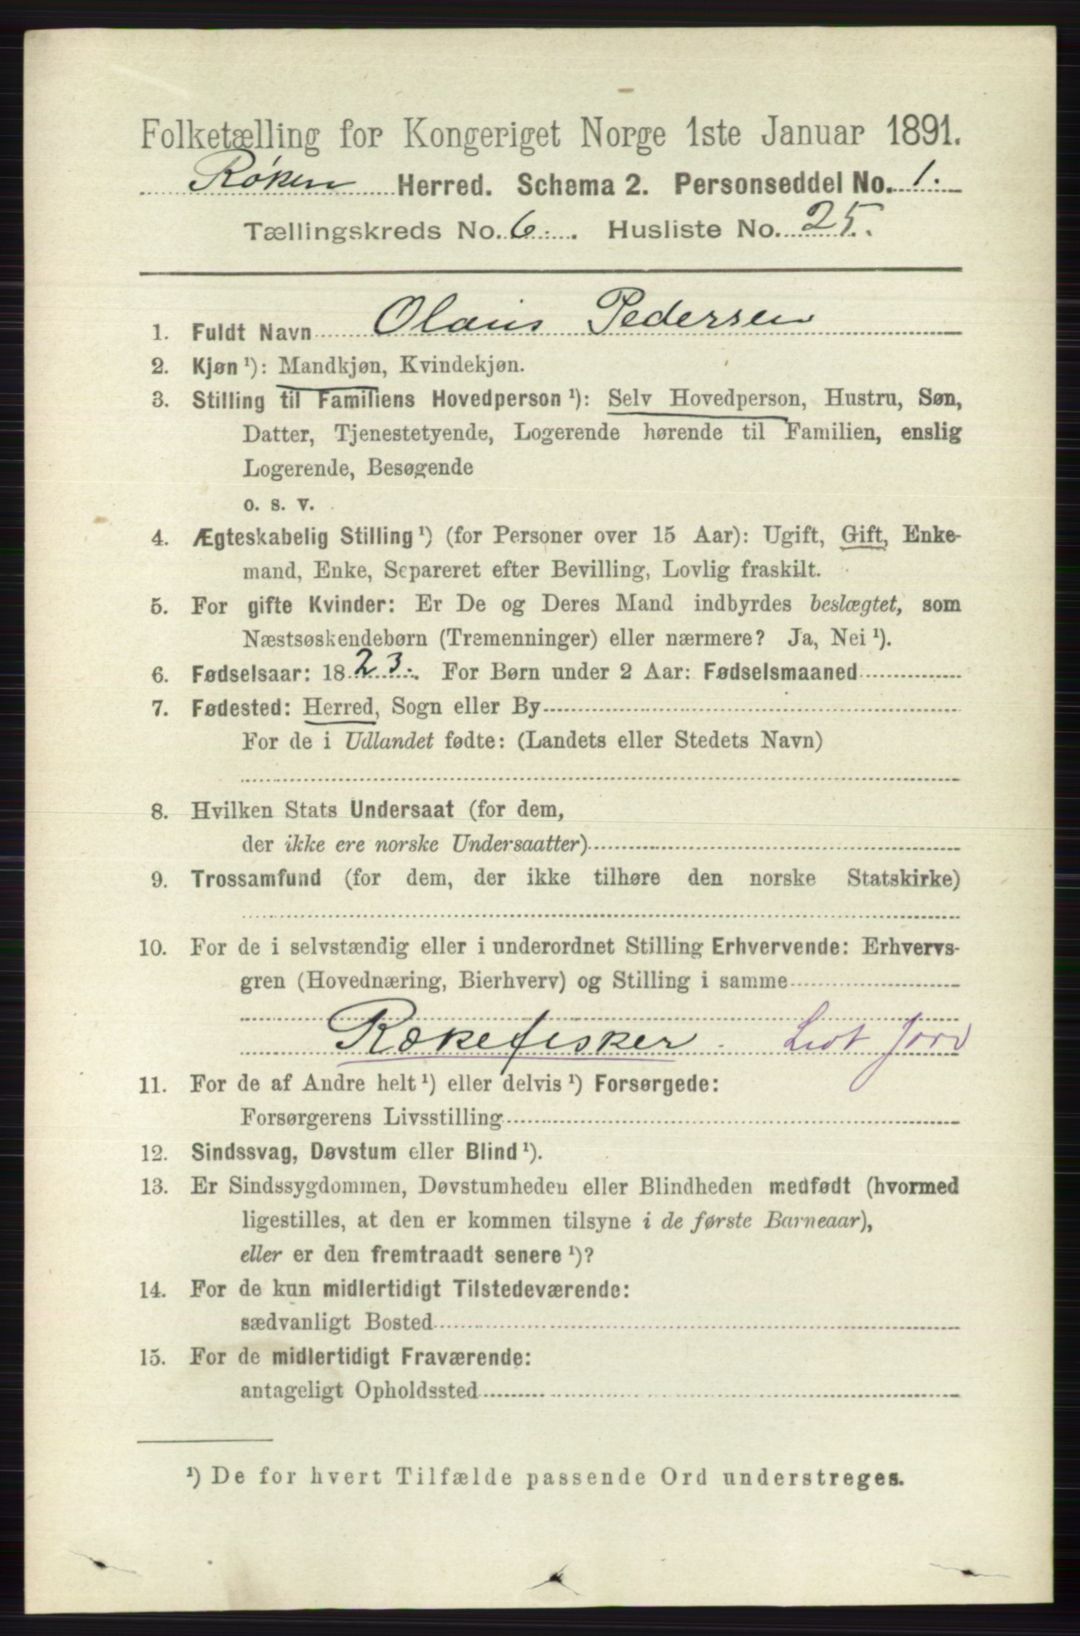 Folketælling for Kongeriget Norge 1ste Januar 1891.
Røken Herred. Schema 2. Personseddel No. 1.
Tællingskreds No. 6. Husliste No. 25.
1. Fuldt Navn Olaus Pedersen
2. Kjøn ¹): Mandkjøn, Kvindekjøn.
3. Stilling til Familiens Hovedperson ¹): Selv Hovedperson, Hustru, Søn,
Datter, Tjenestetyende, Logerende hørende til Familien, enslig
Logerende, Besøgende
o. s. v.
4. Ægteskabelig Stilling ¹) (for Personer over 15 Aar): Ugift, Gift, Enke-
mand, Enke, Separeret efter Bevilling, Lovlig fraskilt.
5. For gifte Kvinder: Er De og Deres Mand indbyrdes beslægtet, som
Næstsøskendebørn (Tremenninger) eller nærmere? Ja, Nei ¹).
6. Fødselsaar: 1823. For Børn under 2 Aar: Fødselsmaaned
7. Fødested: Herred, Sogn eller By
For de i Udlandet fødte: (Landets eller Stedets Navn)
8. Hvilken Stats Undersaat (for dem,
der ikke ere norske Undersaatter)
9. Trossamfund (for dem, der ikke tilhøre den norske Statskirke)
10. For de i selvstændig eller i underordnet Stilling Erhvervende: Erhvervs-
gren (Hovednæring, Bierhverv) og Stilling i samme
Rækefisker. Lidt Jord
11. For de af Andre helt ¹) eller delvis ¹) Forsørgede:
Forsørgerens Livsstilling
12. Sindssvag, Døvstum eller Blind ¹).
13. Er Sindssygdommen, Døvstumheden eller Blindheden medfødt (hvormed
ligestilles, at den er kommen tilsyne i de første Barneaar),
eller er den fremtraadt senere ¹)?
14. For de kun midlertidigt Tilstedeværende:
sædvanligt Bosted
15. For de midlertidigt Fraværende:
antageligt Opholdssted
¹) De for hvert Tilfælde passende Ord understreges.